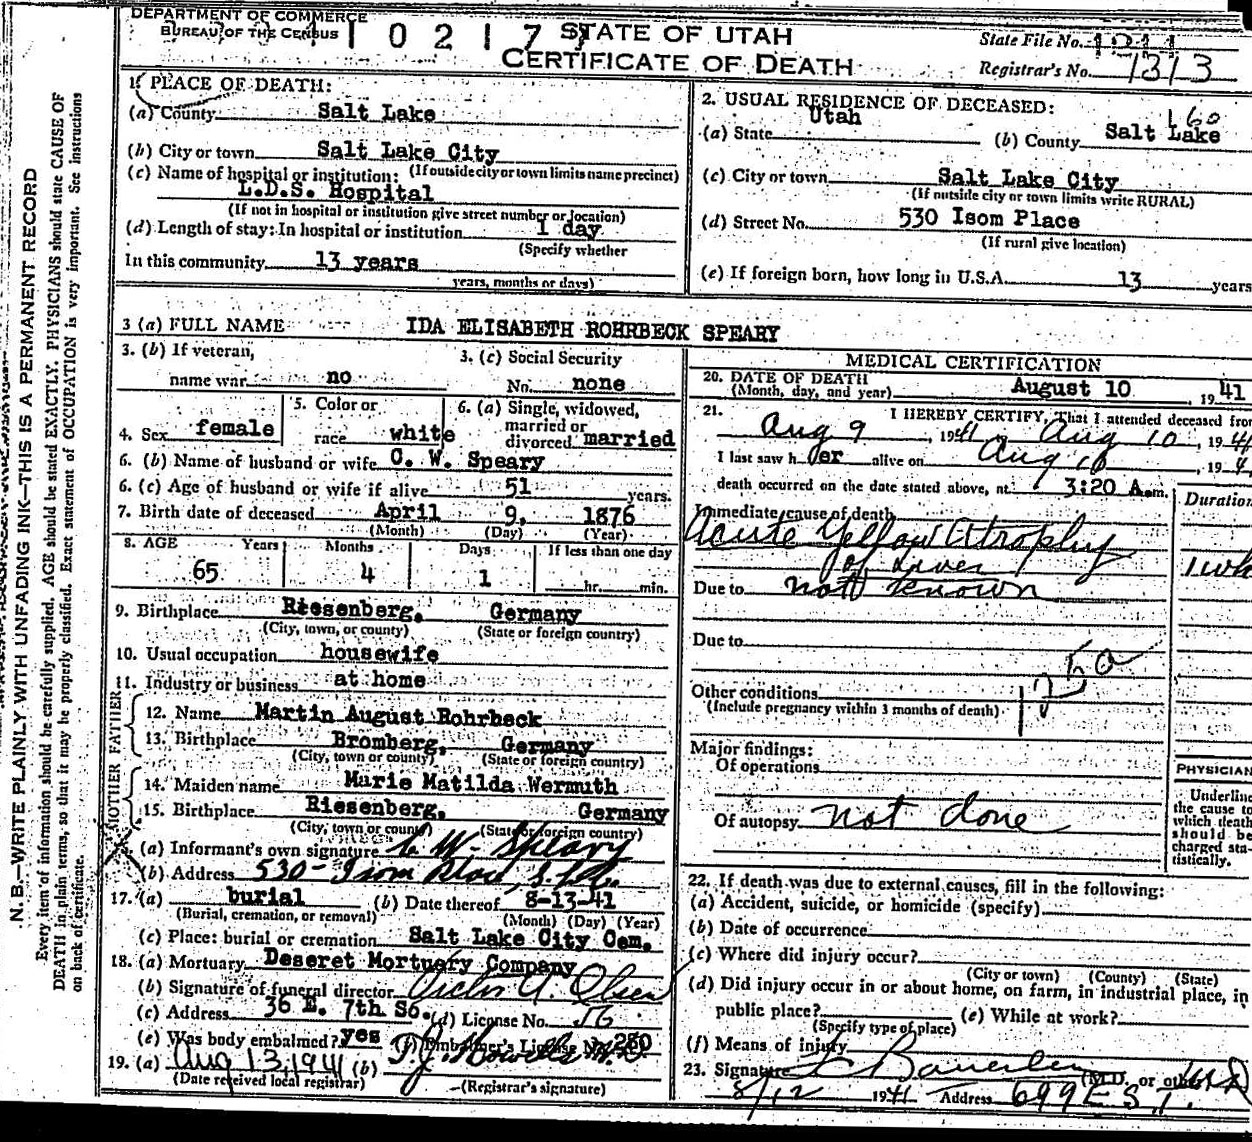 DEPARTMENT OF COMMERCE
BUREAU OF THE CENSUS
1 0 2 1 7
STATE OF UTAH
CERTIFICATE OF DEATH
State File No.
Registrar's No. 1313
N. B.—WRITE PLAINLY WITH UNFADING INK—THIS IS A PERMANENT RECORD
Every item of information should be carefully supplied. AGE should be stated EXACTLY. PHYSICIANS should state CAUSE OF
DEATH in plain terms, so that it may be properly classified. Exact statement of OCCUPATION is very important. See instructions
on back of certificate.
1. PLACE OF DEATH:
(a) County Salt Lake
(b) City or town Salt Lake City
(If outside city or town limits name precinct)
(c) Name of hospital or institution:
L.D.S. Hospital
(If not in hospital or institution give street number or location)
(d) Length of stay: In hospital or institution 1 day
(Specify whether
In this community 13 years
years, months or days)
2. USUAL RESIDENCE OF DECEASED:
160
(a) State Utah (b) County Salt Lake
(c) City or town Salt Lake City
(If outside city or town limits write RURAL)
(d) Street No. 530 Isom Place
(If rural give location)
(e) If foreign born, how long in U.S.A. 13 years
3 (a) FULL NAME IDA ELISABETH ROHRBECK SPEARY
3. (b) If veteran,
name war no
3. (c) Social Security
No. none
4. Sex female
5. Color or
race white
6. (a) Single, widowed,
married or
divorced married
6. (b) Name of husband or wife C. W. Speary
6. (c) Age of husband or wife if alive 51 years.
7. Birth date of deceased April 9, 1876
(Month) (Day) (Year)
8. AGE Years Months Days If less than one day
65 4 1 hr. min.
9. Birthplace Riesenberg, Germany
(City, town, or county) (State or foreign country)
10. Usual occupation housewife
11. Industry or business at home
FATHER
12. Name Martin August Rohrbeck
13. Birthplace Bromberg, Germany
(City, town or county) (State or foreign country)
MOTHER
14. Maiden name Marie Matilda Wermuth
15. Birthplace Riesenberg, Germany
(City, town or county) (State or foreign country)
(a) Informant's own signature C. W. Speary
(b) Address 530 - Isom Place, S.L.C.
17. (a) burial (b) Date thereof 8-13-41
(Burial, cremation, or removal) (Month) (Day) (Year)
(c) Place: burial or cremation Salt Lake City Cem.
18. (a) Mortuary Deseret Mortuary Company
(b) Signature of funeral director Victor A. Olsen
(c) Address 36 E. 7th So. (d) License No. 56
(e) Was body embalmed? yes (f) Embalmer's License No. 260
19. (a) Aug 13, 1941 (b) T.J. Howells M.D.
(Date received local registrar) (Registrar's signature)
MEDICAL CERTIFICATION
20. DATE OF DEATH August 10, 1941
(Month, day, and year)
21. I HEREBY CERTIFY, That I attended deceased from
Aug 9, 1941, Aug 10, 1941
I last saw her alive on Aug 10, 194
death occurred on the date stated above, at 3:20 A.m.
Duration
Immediate cause of death
Acute Yellow Atrophy
of Liver 1 wk
Due to not known
Due to
Other conditions
(Include pregnancy within 3 months of death)
Major findings:
Of operations
Of autopsy not done
PHYSICIAN
Underline
the cause to
which death
should be
charged sta-
tistically.
22. If death was due to external causes, fill in the following:
(a) Accident, suicide, or homicide (specify)
(b) Date of occurrence
(c) Where did injury occur?
(City or town) (County) (State)
(d) Did injury occur in or about home, on farm, in industrial place, in
public place? (e) While at work?
(Specify type of place)
(f) Means of injury
23. Signature (M.D. or other) MD
8/12 1941 Address 699 E S.T.